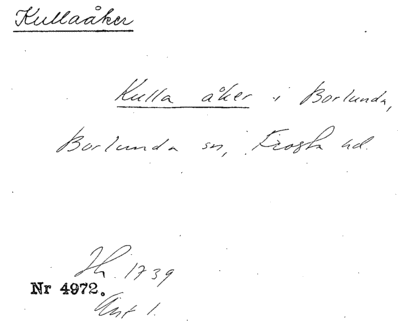 Kullaåker
Kulla åker i Borlunda,
Borlunda sn, Frosta hd.
Jh. 1739
Nr 4972.
Ant 1.